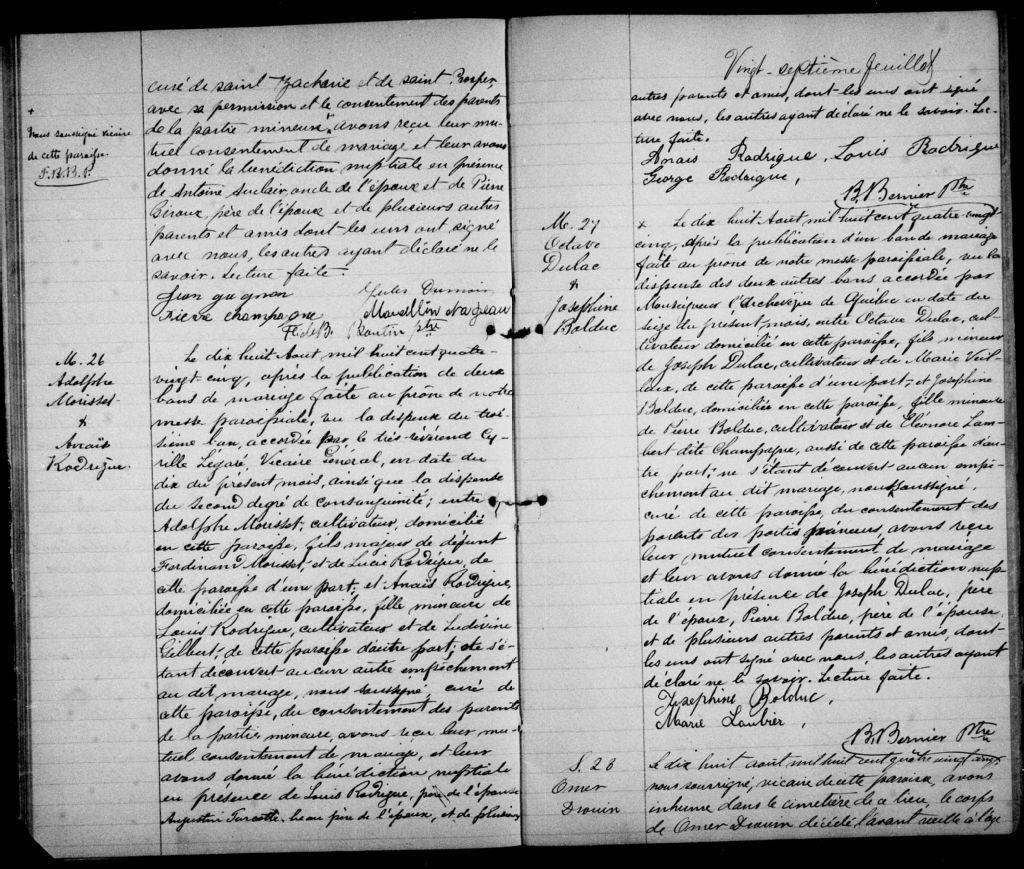 +
Nous soussigné vicaire
de cette paroisse.
F.B.B.P.
curé de saint Zacharie et de saint Prosper,
avec sa permission et le consentement des parents
de la partie mineure, avons reçu leur mu-
tuel consentement de mariage et leur avons
donné la bénédiction nuptiale en présence
de Antoine Auclair, oncle de l'époux et de Pierre
Giroux, père de l'épouse et de plusieurs autres
parents et amis dont les uns ont signé
avec nous, les autres ayant déclaré ne le
savoir. Lecture faite.
Jean gagnon Jules Dumain
Pierre Champagne Marcellin Nageau
F. de B. Boutin ptre
M. 26
Adolphe
Morisset
&
Anais
Rodrigue.
Le dix huit Aout mil huit cent quatre-
vingt-cinq, après la publication de deux
bans de mariage faite au prône de notre
messe paroissiale, vu la dispense du troi-
sième ban, accordée par le très-révérend Cy-
rille Légaré, Vicaire Général, en date du
dix du présent mois, ainsi que la dispense
du second degré de consanguinité; entre
Adolphe Morisset, cultivateur, domicilié
en cette paroisse, fils majeur de défunt
Ferdinand Morisset, et de Lucie Rodrigue, de
cette paroisse d'une part; et Anais Rodrigue,
domiciliée en cette paroisse, fille mineure de
Louis Rodrigue, cultivateur et de Ludivine
Gilbert, de cette paroisse d'autre part; ne s'é-
tant découvert aucun autre empêchement
au dit mariage, nous soussigné, curé de
cette paroisse, du consentement des parents
de la partie mineure, avons reçu leur mu-
tuel consentement de mariage, et leur
avons donné la bénédiction nuptiale
en présence de Louis Rodrigue, père de l'épouse
Augustin Turcotte, beau père de l'époux, et de plusieurs
Vingt-septième feuillet
autres parents et amis, dont les uns ont signé
avec nous, les autres ayant déclaré ne le savoir. Lec-
ture faite.
Anais Rodrigue, Louis Rodrigue
George Rodrigue,
B. Bernier Ptre
M. 27
Octave
Dulac
&
Josephine
Bolduc
x Le dix huit Aout, mil huit cent quatre-vingt
cinq, Après la publication d'un ban de mariage
faite au prône de notre messe paroissiale, vu la
dispense des deux autres bans accordée par
Monseigneur l'Archevêque de Québec en date du
seize du présent mois, entre Octave Dulac, cul-
tivateur domicilié en cette paroisse, fils mineur
de Joseph Dulac, cultivateur et de Marie Veil-
leux, de cette paroisse d'une part; et Josephine
Bolduc, domiciliée en cette paroisse, fille mineure
de Pierre Bolduc, cultivateur et de Eléonore Lam-
bert dite Champagne, aussi de cette paroisse d'au-
tre part; ne s'étant découvert aucun empê-
chement au dit mariage, nous soussigné,
curé de cette paroisse, du consentement des
parents des partis mineurs, avons reçu
leur mutuel consentement de mariage
et leur avons donné la bénédiction nup-
tiale en présence de Joseph Dulac, père
de l'époux, Pierre Bolduc, père de l'épouse
et de plusieurs autres parents et amis, dont
les uns ont signé avec nous, les autres ayant
déclaré ne le savoir. Lecture faite.
Josephine Bolduc,
Marie Loubier,
B. Bernier Ptre
S. 28
Omer
Drouin
Le dix huit août mil huit cent quatre vingt cinq
nous soussigné, vicaire de cette paroisse, avons
inhumé dans le cimetière de ce lieu, le corps
de Omer Drouin décédé l'avant veille à l'âge